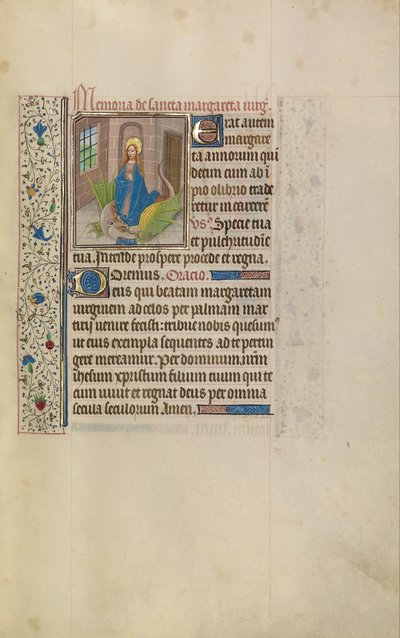 Memoria de sancta margareta virg̃.
Erat autem
margare
ta annorum qui
decim cum ab i
pio olibrio trade
retur in carcerẽ
Vs̃. Specie tua
et pulchritudiñe
tua. Intende prospere procede et regna.
Oremus. Oracio.
Deus qui beatam margaretam
virginem ad celos per palmam mar
tirij venire fecisti: tribue nobis quesumꝰ
ut eius exempla sequentes ad te pertin
gere mereamur. Per dominum nrm̃
ihesum xpristum filium tuum qui te
cum viuit et regnat deus per omnia
secula seculorum Amen.